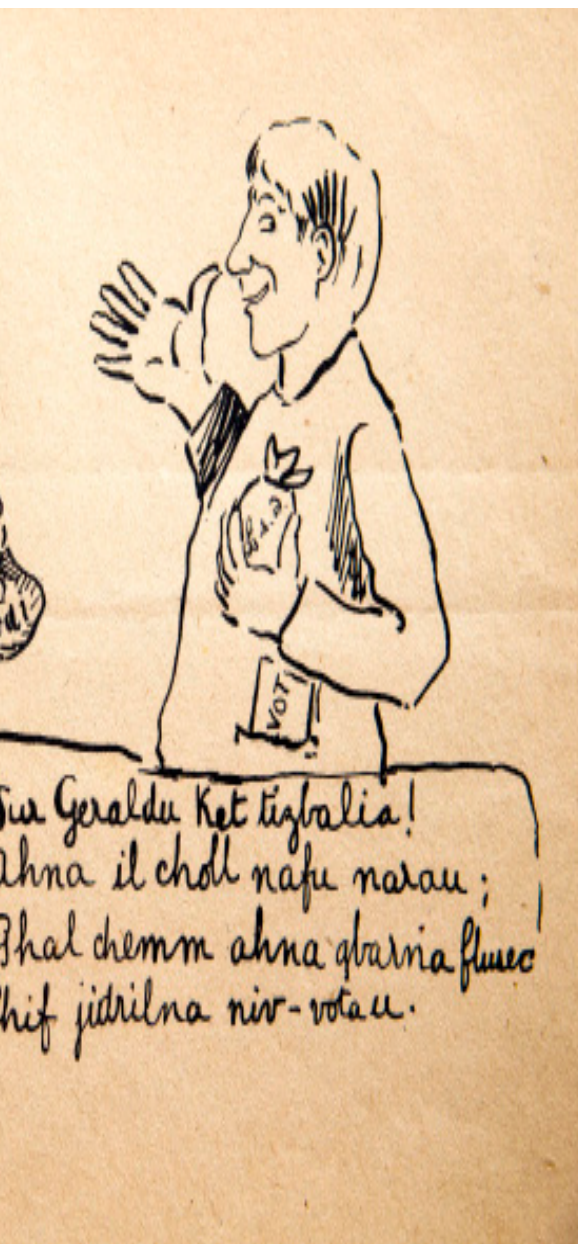 £.s.d
VOT
Sur Geraldu Ket tizbalia!
Ahna il choll nafu naraw;
Bhal chemm ahna qbarna flusec
Chif jidrilna niv-votaw.